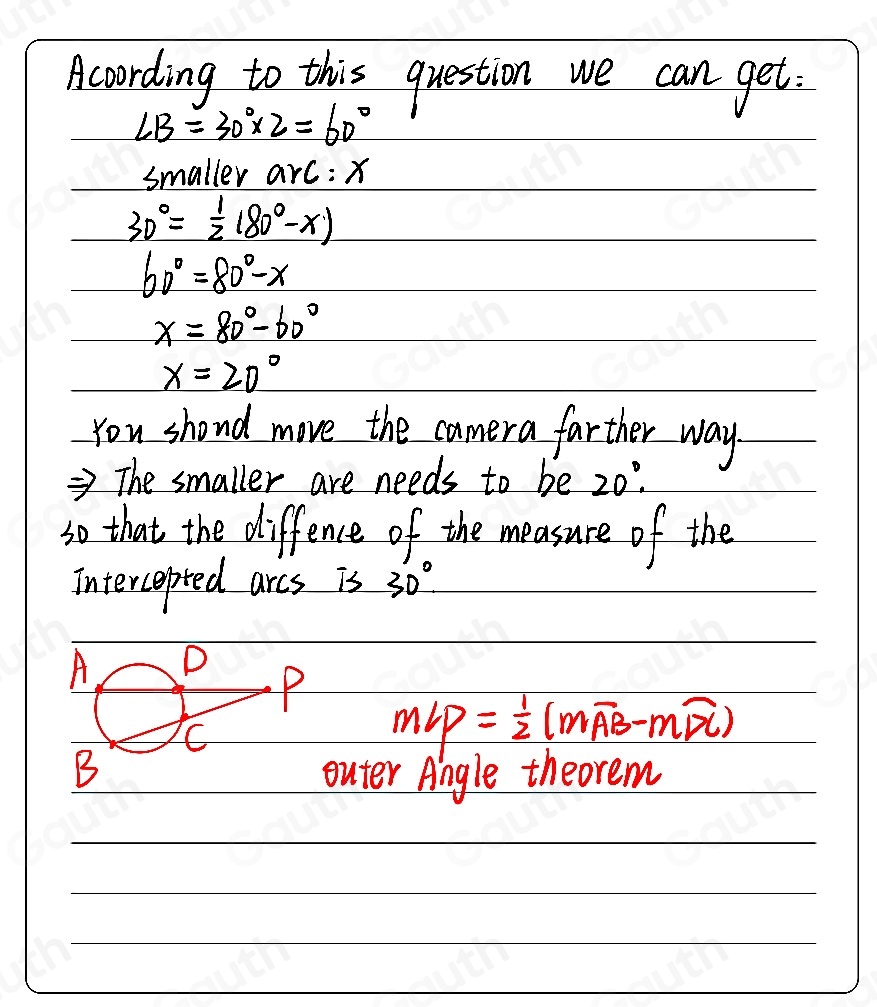 Acoording to this question we can get:
∠B = 30°×2 = 60°
smaller arc: x
30° = 1/2 (80°-x)
60° = 80°-x
x = 80°-60°
x = 20°
You shond move the camera farther way.
⇒ The smaller are needs to be 20°.
so that the diffence of the measure of the
Intercepted arcs is 30°.
A D P
B C
m∠P = 1/2 (mAB⌢-mDC⌢)
outer Angle theorem
Gauth